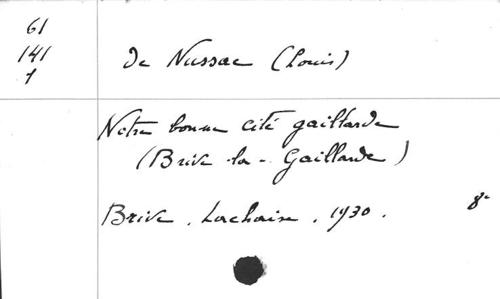 61
141
1
De Nussac (Louis)
Notre bonne cité gaillarde
(Brive-la-Gaillarde)
Brive. Lachaise. 1930.
8°